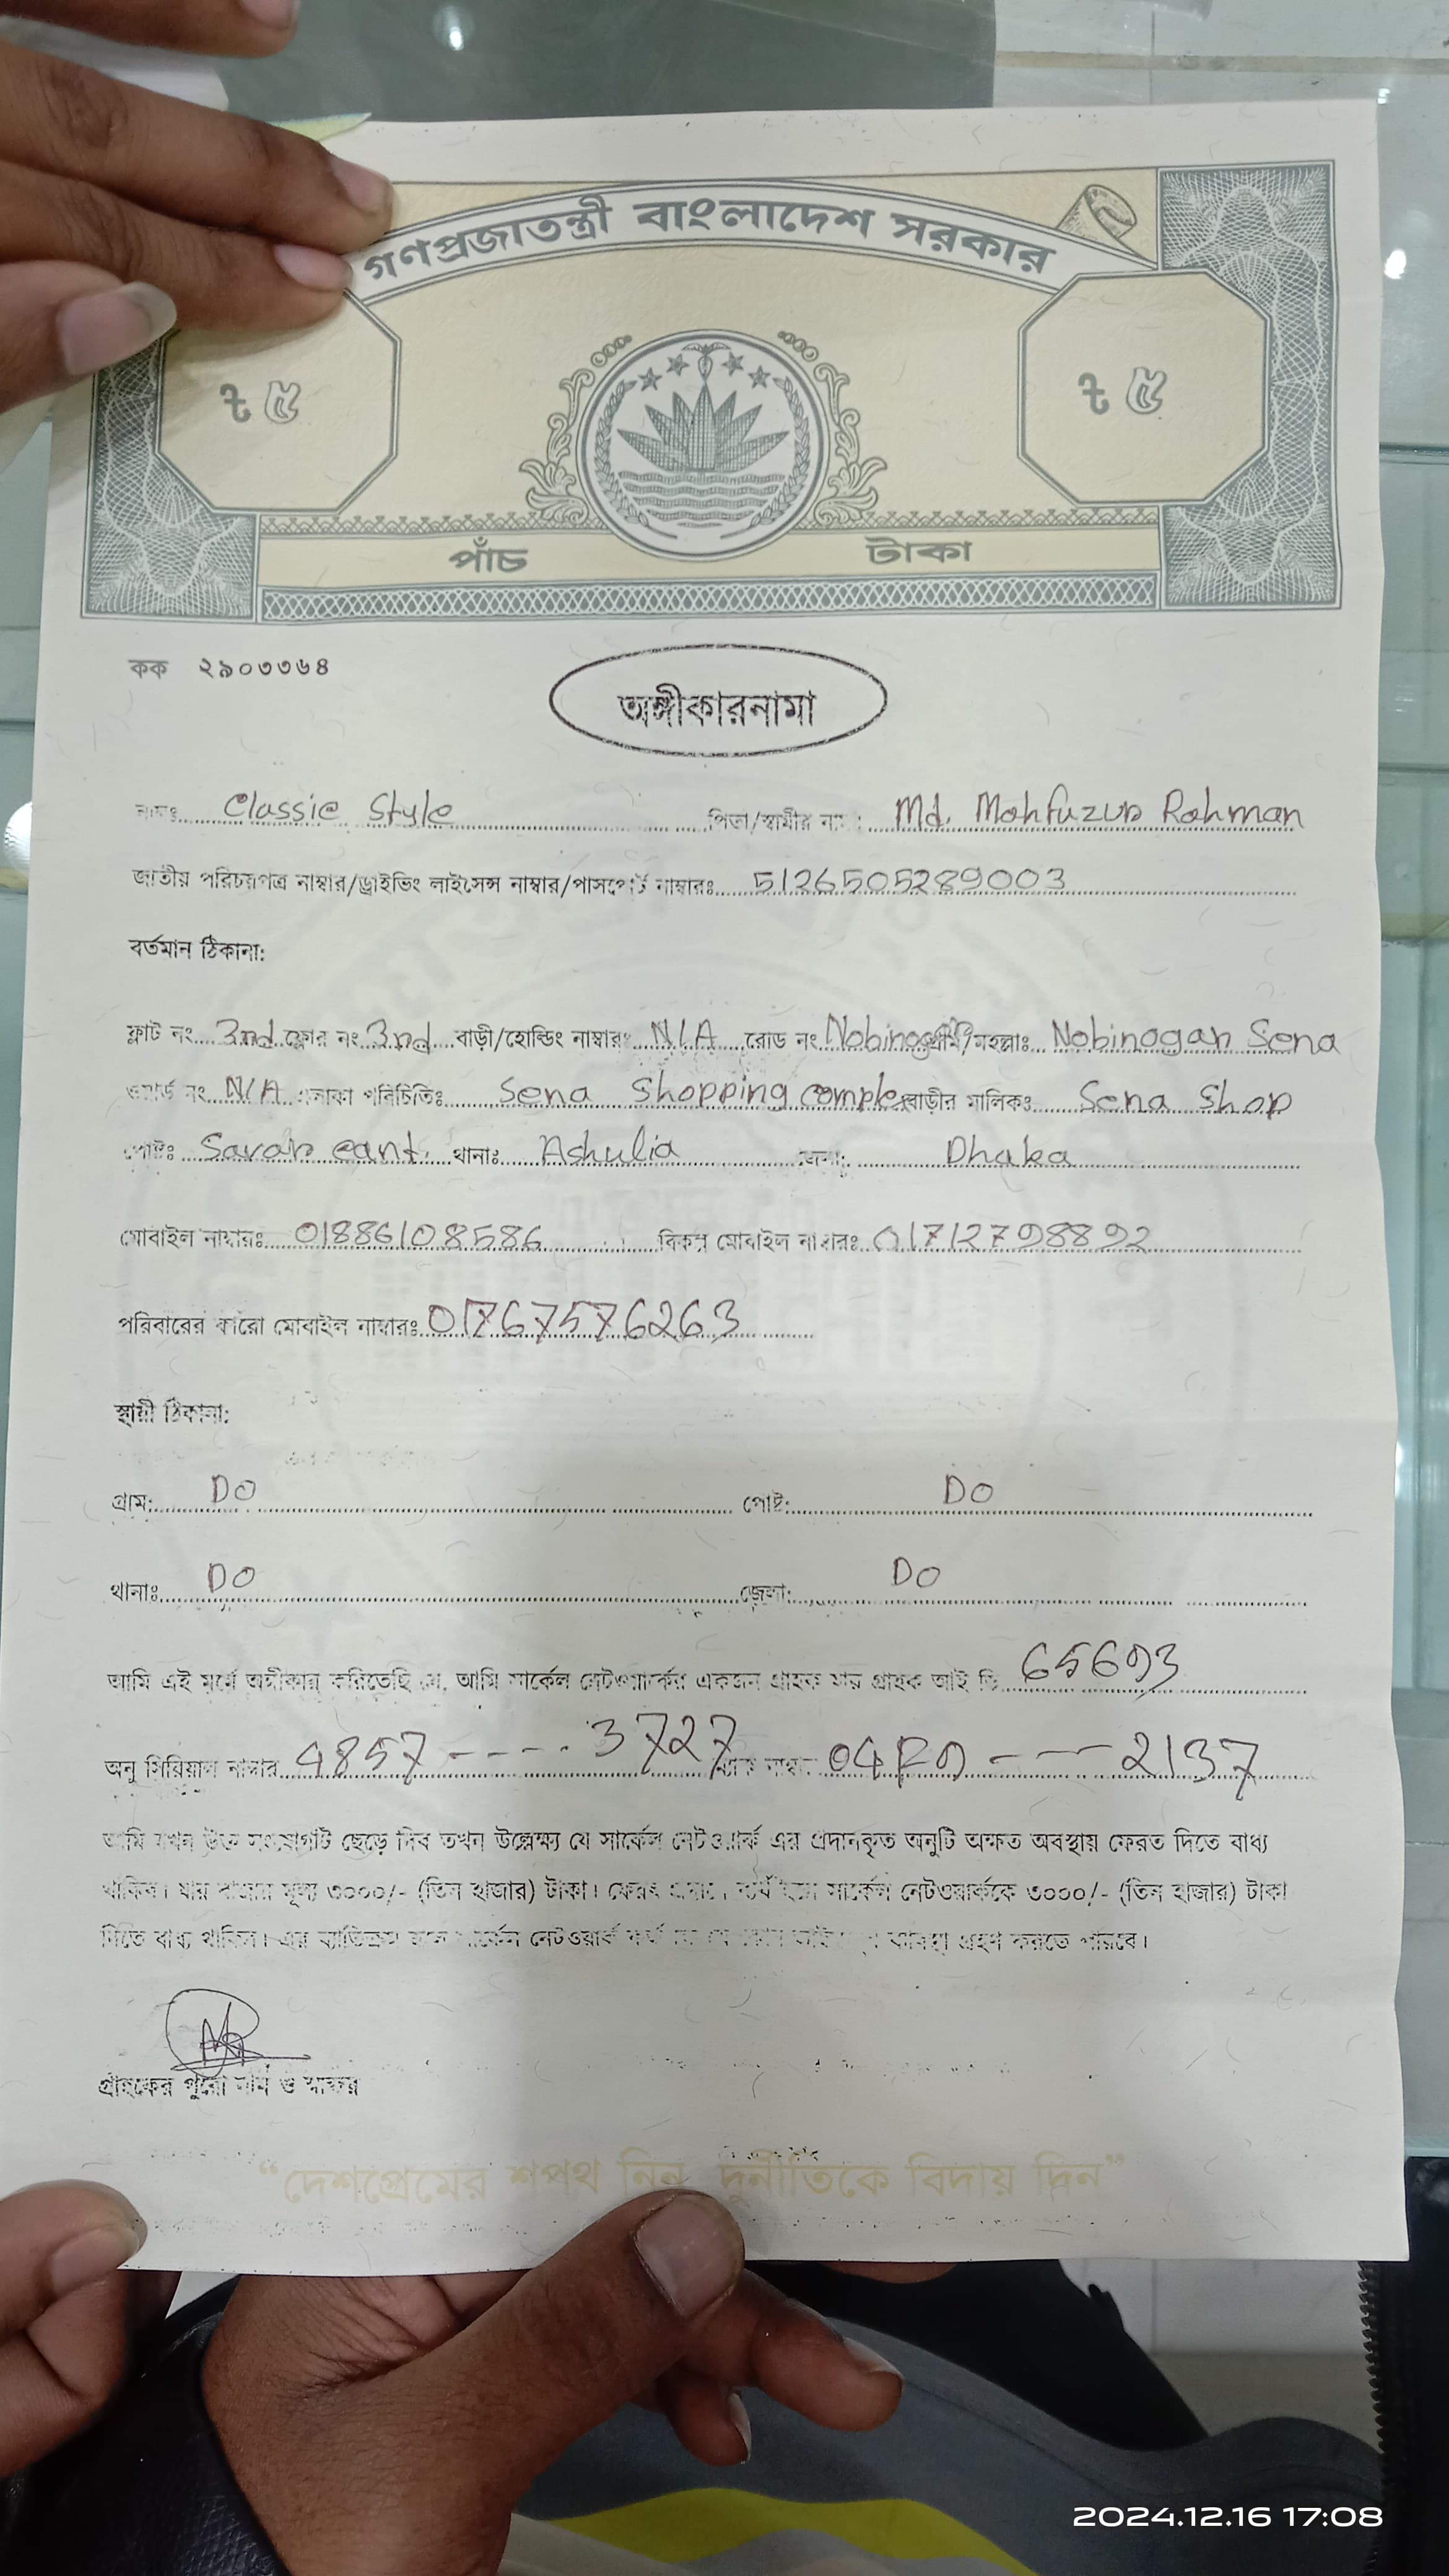 গণপ্রজাতন্ত্রী বাংলাদেশ সরকার
৳ ৫ ৳ ৫
পাঁচ টাকা
কক ২৯০৩৩৬৪
অঙ্গীকারনামা
নামঃ Classic Style পিতা/স্বামীর নাম: Md. Mahfuzur Rahman
জাতীয় পরিচয়পত্র নাম্বার/ড্রাইভিং লাইসেন্স নাম্বার/পাসপোর্ট নাম্বারঃ 5126505289003
বর্তমান ঠিকানা:
ফ্লাট নং 3nd ফ্লোর নং 3nd বাড়ী/হোল্ডিং নাম্বারঃ N/A রোড নং /মহল্লাঃ Nobinogar Sena
ওয়ার্ড নং N/A এলাকা পরিচিতিঃ Sena Shopping comple বাড়ীর মালিকঃ Sena Shop
পোষ্টঃ Savar cant. থানাঃ Ashulia জেলা: Dhaka
মোবাইল নাম্বারঃ 01886108586 বিকল্প মোবাইল নাম্বারঃ 01712798892
পরিবারের কারো মোবাইল নাম্বারঃ 01767576263
স্থায়ী ঠিকানা:
গ্রাম: DO পোষ্ট: DO
থানাঃ DO জেলা: DO
আমি এই মর্মে অঙ্গীকার করিতেছি যে, আমি সার্কেল নেটওয়ার্কের একজন গ্রাহক যার গ্রাহক আই ডি 65693
অনু সিরিয়াল নাম্বার 4857 ---- 3727 ম্যাক নাম্বার 04F9 ---- 2137
আমি যখন উক্ত সংযোগটি ছেড়ে দিব তখন উল্লেক্ষ্য যে সার্কেল নেটওয়ার্ক এর প্রদানকৃত অনুটি অক্ষত অবস্থায় ফেরত দিতে বাধ্য
থাকিব। যার বাজার মূল্য ৩০০০/- (তিন হাজার) টাকা। ফেরৎ সার্কেল নেটওয়ার্ককে ৩০০০/- (তিন হাজার) টাকা
দিতে বাধ্য থাকিব। এর ব্যতিক্রম হলে সার্কেল নেটওয়ার্ক ব্যবস্থা গ্রহণ করতে পারবে।
গ্রাহকের পুরো নাম ও স্বাক্ষর
“দেশপ্রেমের শপথ নিন, দুর্নীতিকে বিদায় দিন”
2024.12.16 17:08